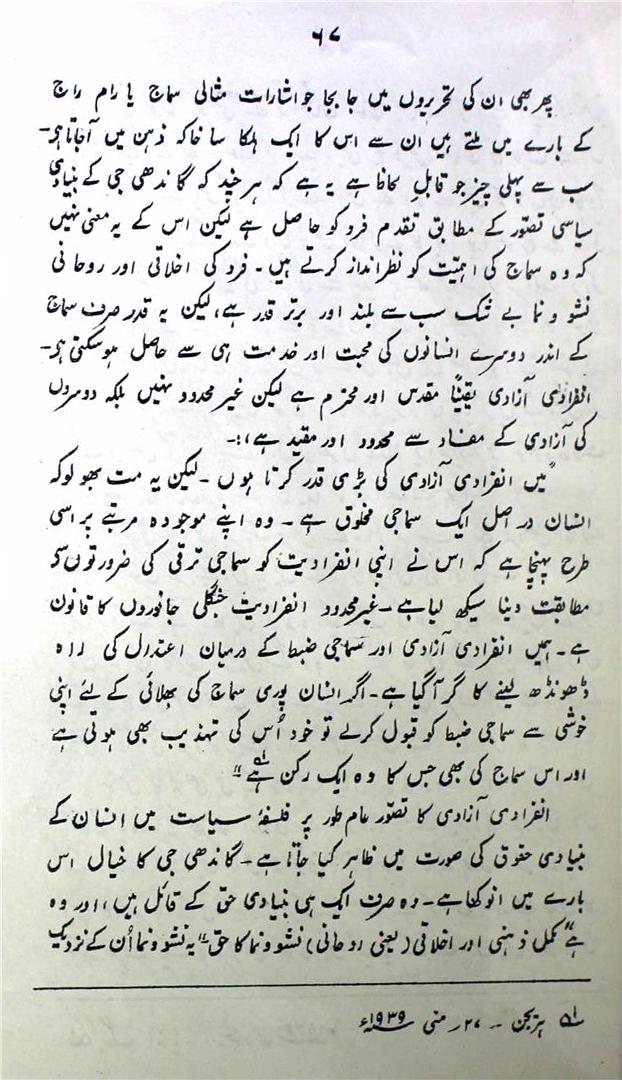 ۶۷
پھر بھی ان کی تحریروں میں جا بجا جو اشارات مثالی سماج یا رام راج
کے بارے میں ملتے ہیں ان سے اس کا ایک ہلکا سا خاکہ ذہن میں آجاتا ہی۔
سب سے پہلی چیز جو قابلِ لحاظ ہے یہ ہے کہ ہر چند کہ گاندھی جی کے بنیادی
سیاسی تصوّر کے مطابق تقدم فرد کو حاصل ہے لیکن اس کے یہ معنی نہیں
کہ وہ سماج کی اہمیّت کو نظر انداز کرتے ہیں۔ فرد کی اخلاقی اور روحانی
نشو و نما بے شک سب سے بلند اور برتر قدر ہے، لیکن یہ قدر صرف سماج
کے اندر دوسرے انسانوں کی محبت اور خدمت ہی سے حاصل ہوسکتی ہی۔
انفرادی آزادی یقیناً مقدس اور محترم ہے لیکن غیر محدود نہیں بلکہ دوسروں
کی آزادی کے مفاد سے محدود اور مقید ہے،:۔
"میں انفرادی آزادی کی بڑی قدر کرتا ہوں ۔ لیکن یہ مت بھولو کہ
انسان دراصل ایک سماجی مخلوق ہے ۔ وہ اپنے موجودہ مرتبے پر اسی
طرح پہنچا ہے کہ اس نے اپنی انفرادیت کو سماجی ترقی کی ضرورتوں سی
مطابقت دینا سیکھ لیا ہے۔ غیر محدود انفرادیت جنگلی جانوروں کا قانون
ہے۔ ہمیں انفرادی آزادی اور سماجی ضبط کے درمیان اعتدال کی راہ
ڈھونڈھ لینے کا گر آگیا ہے۔ اگر انسان پوری سماج کی بھلائی کے لئے اپنی
خوشی سے سماجی ضبط کو قبول کرلے تو خود اُس کی تہذیب بھی ہوتی ہے
اور اس سماج کی بھی جس کا وہ ایک رکن ہے"؂۱
انفرادی آزادی کا تصوّر عام طور پر فلسفۂ سیاست میں انسان کے
بنیادی حقوق کی صورت میں ظاہر کیا جاتا ہے۔ گاندھی جی کا خیال اس
بارے میں انوکھا ہے۔ وہ صرف ایک ہی بنیادی حق کے قائل ہیں، اور وہ
ہے "مکمل ذہنی اور اخلاقی (یعنی روحانی) نشو و نما کا حق" یہ نشو و نما اُن کے نزدیک
؂۱ ہریجن ۔ ۲۷؍ مئی ۱۹۳۹ء